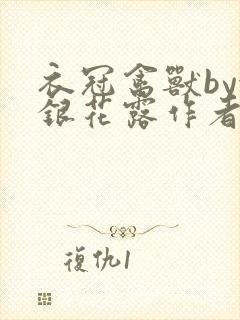 衣冠禽獸by
銀花露作者
復仇1